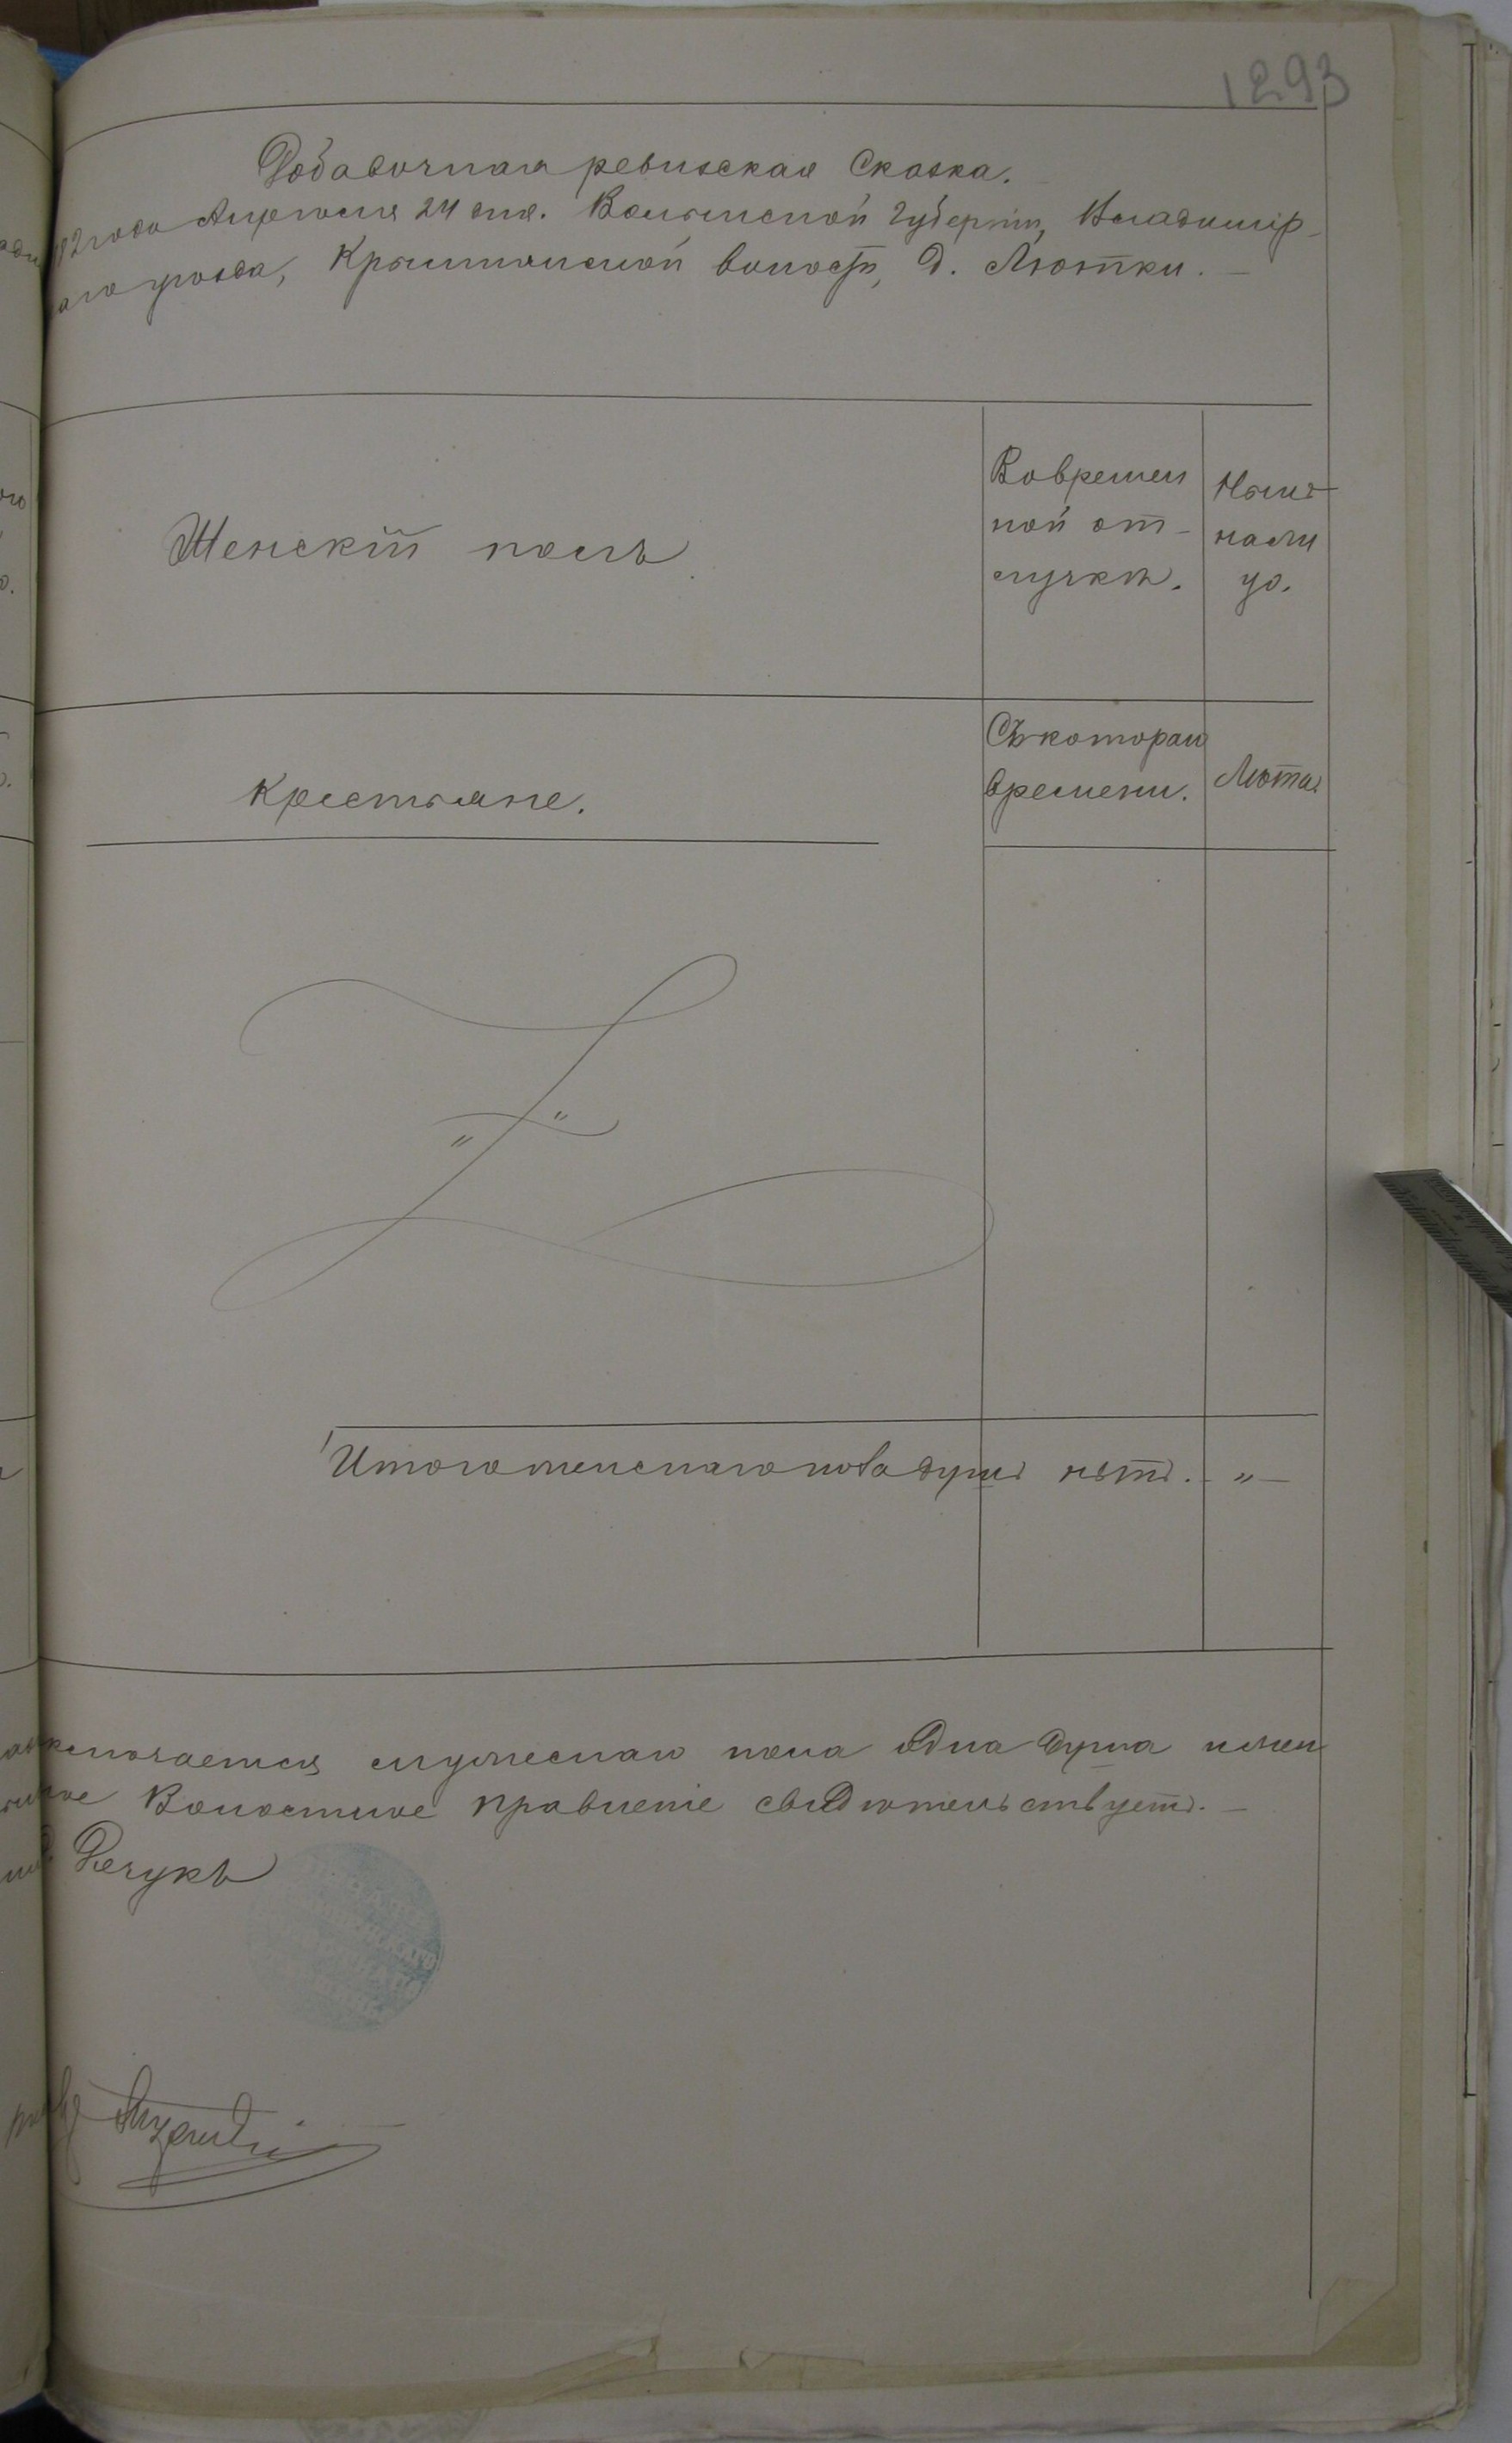 1293
Добавочная ревизская Сказка.
года Апреля 24 дня. Волынской Губерніи, Владимір-
уѣзда, волости, д. Лютки. —
Женскій полъ
Во времен
ной от-
лучкѣ.
Нынѣ
нали
цо.
Крестьяне.
Съ котораго
времени.
Лѣта.
" "
Итого женскаго пола душъ нѣтъ. - " -
мужескаго пола одна душа
Волостное правленіе свидѣтельствуетъ. —